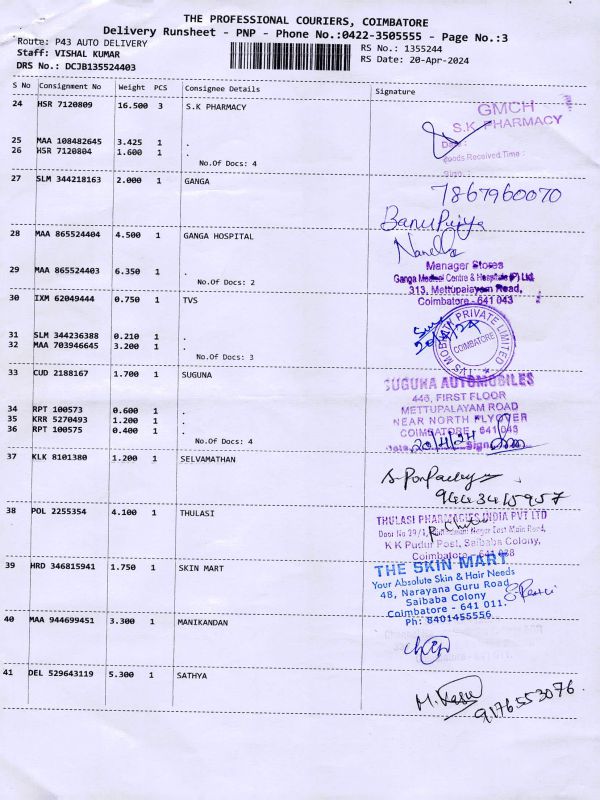 THE PROFESSIONAL COURIERS, COIMBATORE
Delivery Runsheet - PNP - Phone No.:0422-3505555 - Page No.:3
Route: P43 AUTO DELIVERY
RS No.: 1355244
Staff: VISHAL KUMAR
RS Date: 20-Apr-2024
DRS No.: DCJB135524403
S No Consignment No Weight PCS Consignee Details Signature
24 HSR 7120809 16.500 3 S.K PHARMACY
GMCH
S.K. PHARMACY
Date :
Goods Received Time :
Sign :
25 MAA 108482645 3.425 1 .
26 HSR 7120804 1.600 1 .
No.Of Docs: 4
27 SLM 344218163 2.000 1 GANGA
7867960070
28 MAA 865524404 4.500 1 GANGA HOSPITAL
Manager Stores
Ganga Medical Centre & Hospitals (P) Ltd,
313, Mettupalayam Road,
Coimbatore - 641 043
29 MAA 865524403 6.350 1 .
No.Of Docs: 2
30 IXM 62049444 0.750 1 TVS
20/4/24
TVS MOBILITY PRIVATE LIMITED
COIMBATORE
31 SLM 344236388 0.210 1 .
32 MAA 703946645 3.200 1 .
No.Of Docs: 3
33 CUD 2188167 1.700 1 SUGUNA
SUGUNA AUTOMOBILES
446, FIRST FLOOR
METTUPALAYAM ROAD
NEAR NORTH FLYOVER
COIMBATORE - 641 043
Date 20/4/24 Sign
34 RPT 100573 0.600 1 .
35 KRR 5270493 1.200 1 .
36 RPT 100575 0.400 1 .
No.Of Docs: 4
37 KLK 8101380 1.200 1 SELVAMATHAN
9443415957
38 POL 2255354 4.100 1 THULASI
THULASI PHARMACIES INDIA PVT LTD
Door No 29/1, Nagar East Main Road,
K K Pudur Post, Saibaba Colony,
Coimbatore - 641 038
39 HRD 346815941 1.750 1 SKIN MART
THE SKIN MART
Your Absolute Skin & Hair Needs
48, Narayana Guru Road
Saibaba Colony
Coimbatore - 641 011.
Ph: 8401455556
40 MAA 944699451 3.300 1 MANIKANDAN
41 DEL 529643119 5.300 1 SATHYA
9176553076